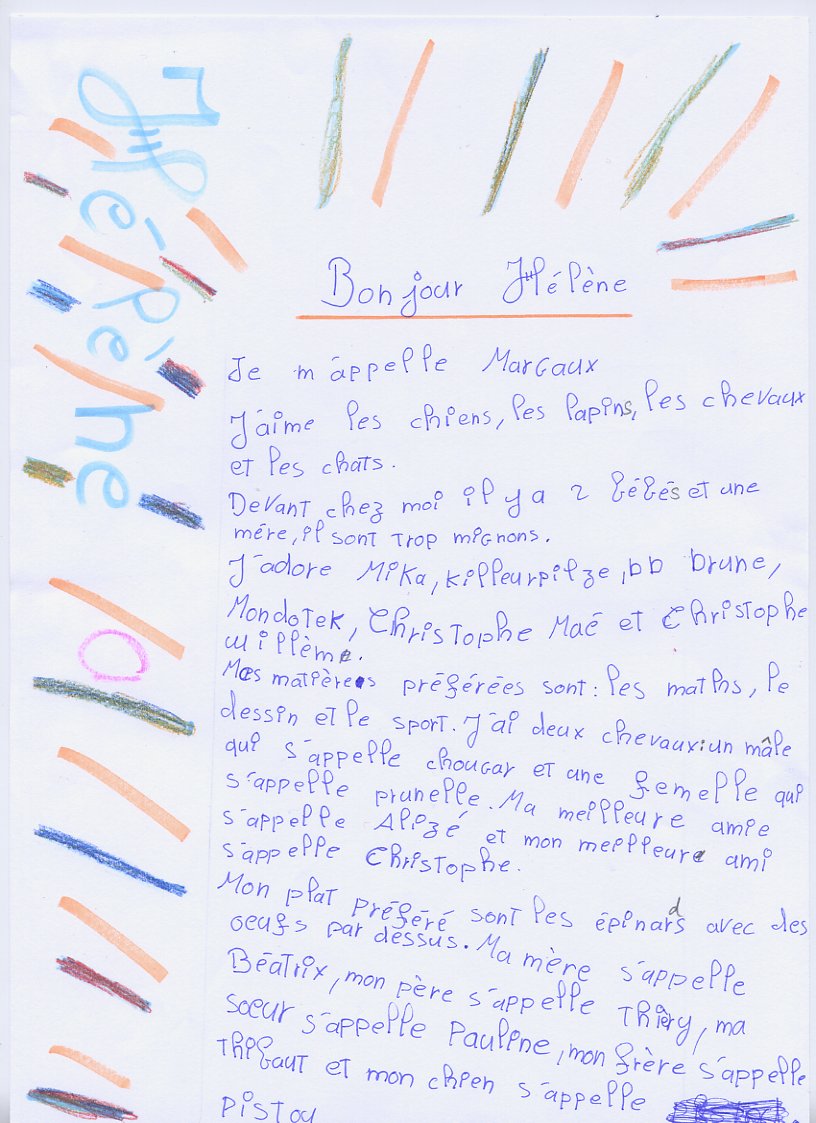 Hélène
Bonjour Hélène
Je m'appelle Margaux
J'aime les chiens, les lapins, les chevaux
et les chats.
Devant chez moi il y a 2 bébés et une
mére, il sont trop mignons.
J'adore Mika, killeurpilze, bb brune,
Mondotek, Christophe Maé et Christophe
willème.
Mes matières préférées sont : les maths, le
dessin et le sport. J'ai deux chevaux : un mâle
qui s'appelle chougar et une femelle qui
s'appelle prunelle. Ma meilleure amie
s'appelle Alizé et mon meilleure ami
s'appelle Christophe.
Mon plat préféré sont les épinards avec des
oeufs par dessus. Ma mère s'appelle
Béatrix, mon père s'appelle Thièry, ma
sœur s'appelle Pauline, mon frère s'appelle
Thibaut et mon chien s'appelle
Pistou